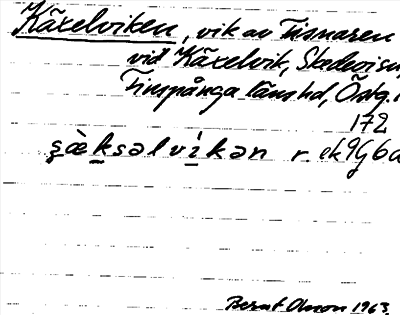 Käxelviken, vik av Tisnaren
vid Käxelvik, Skedevi sn,
Finspånga läns hd, Östg.
172
ʂæ̀ksəlvíkən r. ek 9G6a
Bernt Olsson 1963